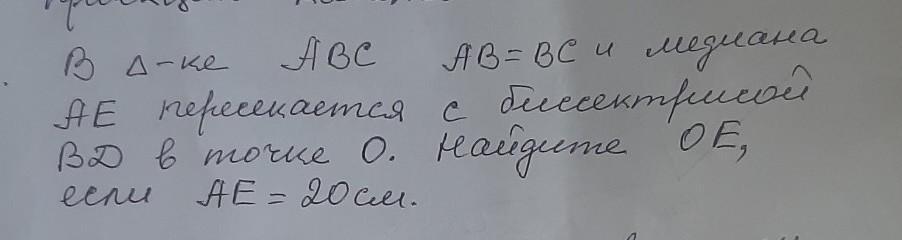 В Δ-ке ABC AB=BC и медиана
AE пересекается с биссектрисой
BD в точке O. Найдите OE,
если AE = 20см.